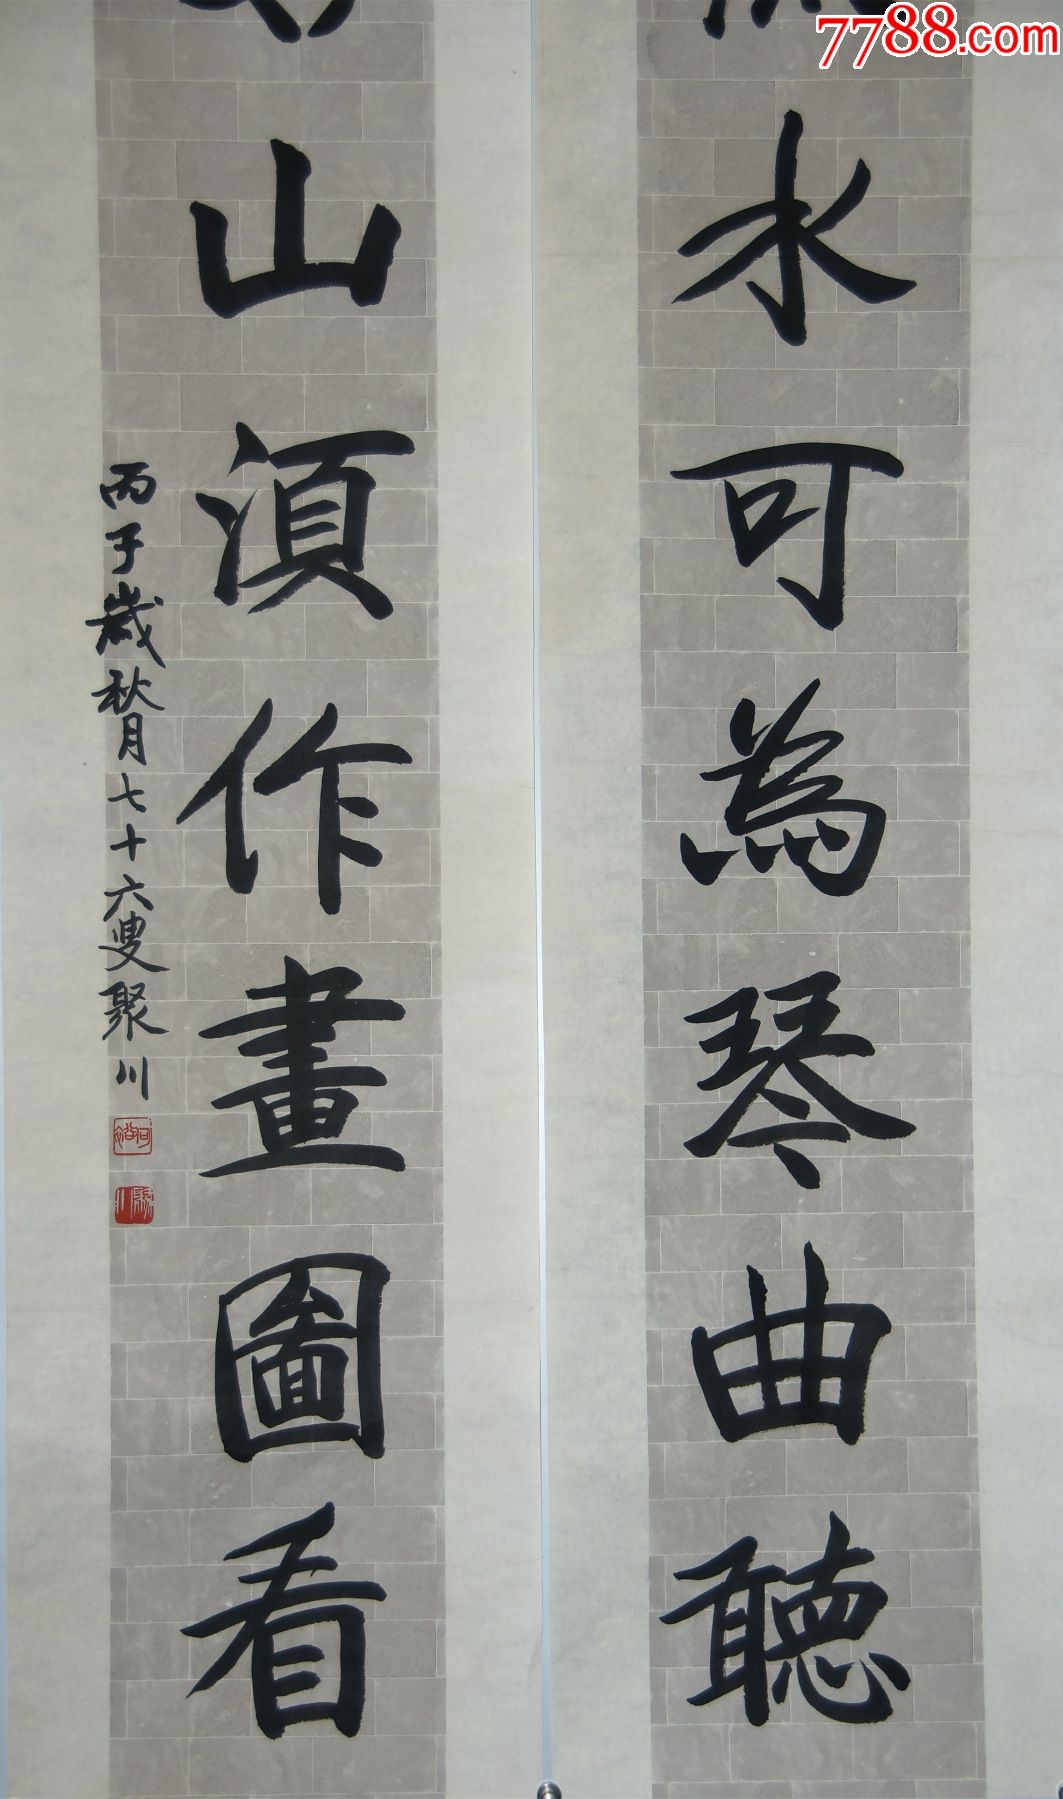 7788.com
水可為琴曲聽
山須作畫圖看
丙子歲秋月七十六叟聚川